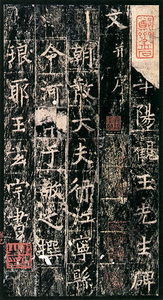 陽觀王先生碑
文并序
朝散大夫行江寧縣
令河于敬之撰
琅耶王玄宗書